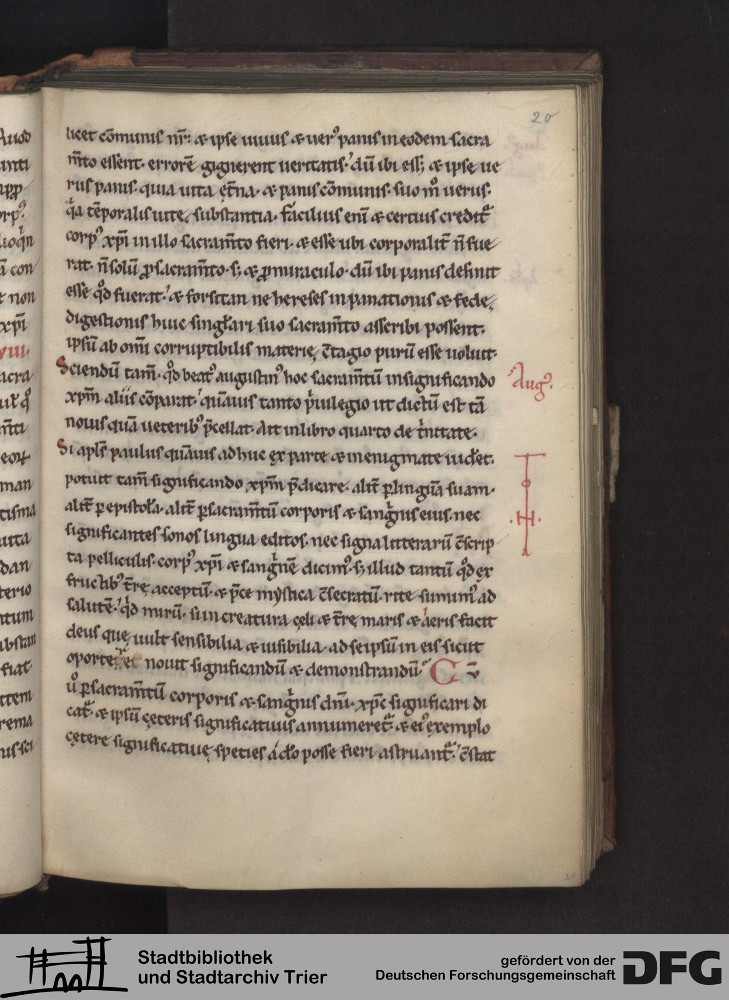 20
licet cōmunis nr̄: & ipse uiuus & uer᷒ panis in eodem sacra
m̄to essent. errorē gignerent ueritatis. dū ibi ess; & ipse ue
rus panis. quia uita et̄na. & panis cōmunis. suo m̊ uerus.
q̇a tēporalis uite, substantia. facilius eni & certius credit᷑
corp᷒ xp̄i in illo sacram̄to fieri. & esse ubi corporalit̄ n̄ fue
rat. n̄ solū ꝓ sacram̄to. s; & ꝓ miraculo. dū ibi panis desinit
esse qd̄ fuerat. & forsitan ne hereses inpanationis & fede,
digestionis huic singłari suo sacram̄to asscribi possent.
ipsū ab omī corruptibilis materię, c̄tagio purū esse uoluit.
Sciendū tam̄. qd̄ beat᷒ augustin᷒ hoc sacram̄tū in significando
xp̄m aliis cōparat. quāuis tanto p̄uilegio ut dictū est tā
nouis quā ueterib᷒ p̄cellat. Ait in libro quarto de t̓nitate.
Si apl̄s paulus quāuis adhuc ex parte & in enigmate uidet.
potuit tam̄ significando xp̄m p̄dicare. alit̄ ꝑ linguā suam.
alit̄ ꝑ epistołā. alit̄ ꝑ sacram̄tū corporis & sanguinis eius. nec
significantes sonos lingua editos. nec signa litterarū c̄scrip
ta pelliculis. corp᷒ xp̄i & sanguinē dicim᷒. s; illud tantū qd̄ ex
fructib᷒ t̄rę acceptū & p̄ce mystica c̄secratū. rite sumim᷒ ad
salutē. qd̄ mirū. si in creatura cęli & t̄rę maris & aeris facit
deus quę uult sensibilia & uisibilia. ad seipsū in eis sicut
oporte nouit significandū & demonstrandū. C
ů ꝑ sacram̄tū corporis & sanguinis dn̄i. xp̄c significari di
cat᷑. & ipsū cęteris significatiuis annumeret᷑. & ei᷒ exemplo
cętere significatiuę species a dō posse fieri astruant᷑. c̄stat
Aug᷒.
.H.
20
Stadtbibliothek
und Stadtarchiv Trier
gefördert von der
Deutschen Forschungsgemeinschaft
DFG